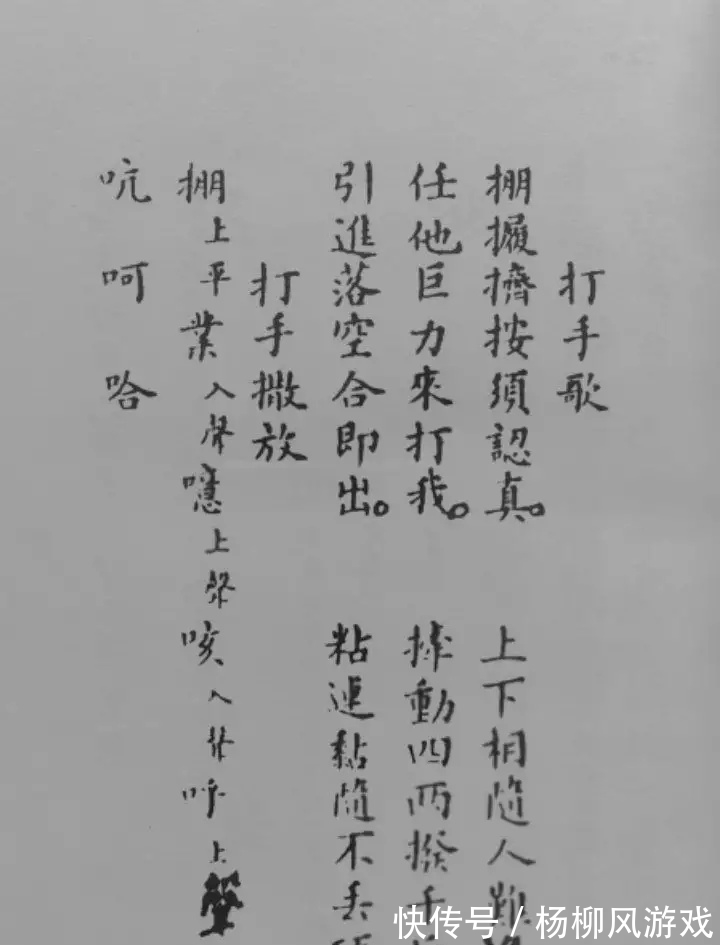 打手歌
掤攦擠按須認真。 上下相隨人難
任他巨力來打我。 動四兩撥千
引進落空合即出。 粘連黏隨不丟
打手撒放
掤上平業入聲噫上聲咳入聲呼上聲
吭 呵 哈
快传号/杨柳风游戏